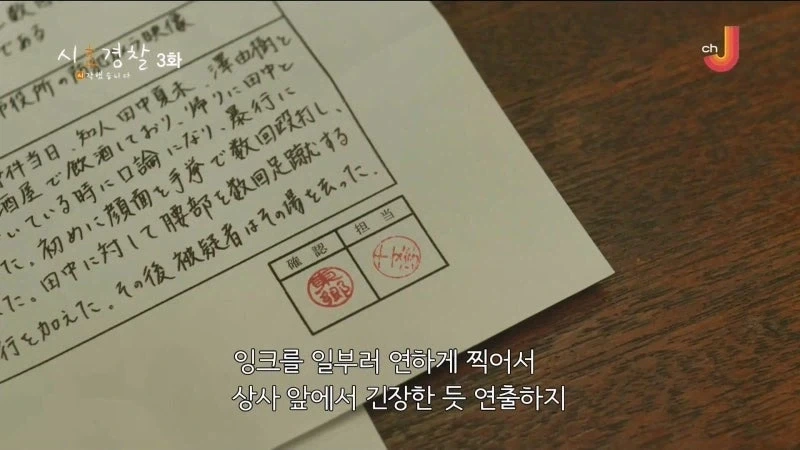 시효경찰 3화
시작했습니다
ch J
である
市役所の
件当日、知人田中夏未、澤由樹と
酒屋で飲酒しており、帰りに田中と
いている時に口論になり、暴行に
た。初めに顔面を手拳で数回殴打し、
た。田中に対して腰部を数回足蹴する
行を加えた。その後被疑者はその場を去った。
確認 担当
東郷
잉크를 일부러 연하게 찍어서
상사 앞에서 긴장한 듯 연출하지